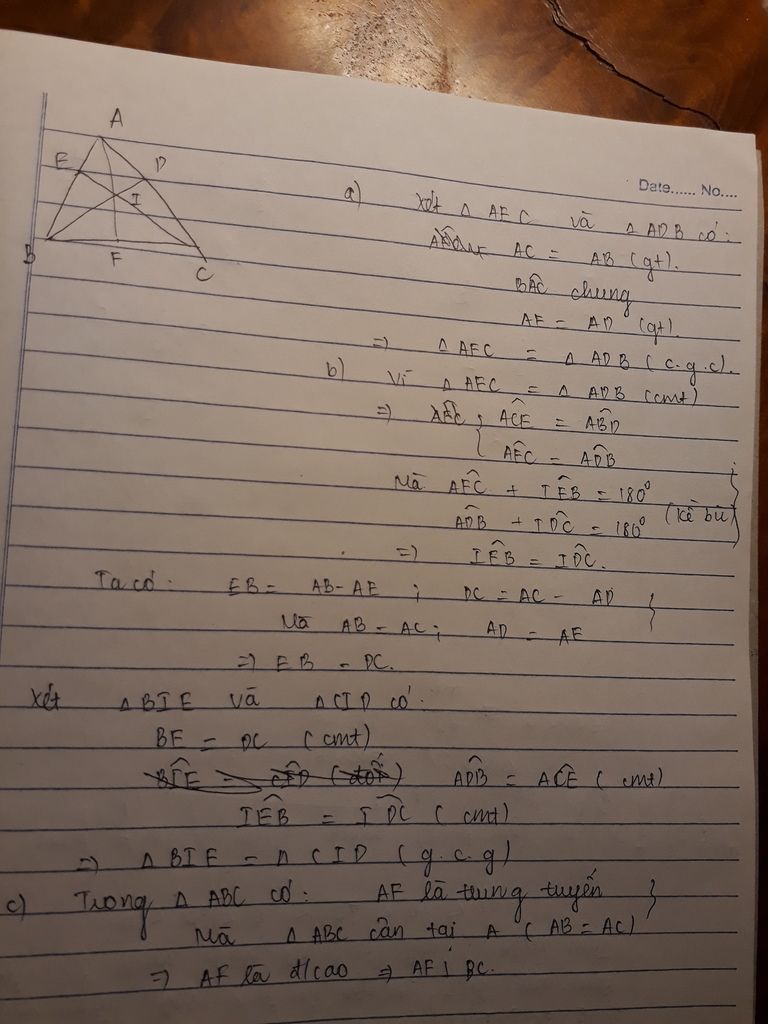 A
E
D
I
B
F
C
Date...... No....
a) Xét △ AEC và △ ADB có:
AC = AB (gt).
BÂC chung
AE = AD (gt)
=> △ AEC = △ ADB ( c.g.c).
b) Vì △ AEC = △ ADB (cmt)
=> { ACE^ = ABD^
AEC^ = ADB^
Mà AEC^ + IEB^ = 180°
(kề bù)
ADB^ + IDC^ = 180°
=> IEB^ = IDC^.
Ta có: EB = AB - AE ; DC = AC - AD }
Mà AB = AC; AD = AE
=> EB = DC.
Xét △ BIE và △ CID có:
BE = DC (cmt)
ADB^ = ACE^ ( cmt)
IEB^ = IDC^ ( cmt)
=> △ BIE = △ CID ( g.c.g)
c) Trong △ ABC có: AF là trung tuyến }
Mà △ ABC cân tại A ( AB = AC)
=> AF là đ/cao => AF ⊥ BC.